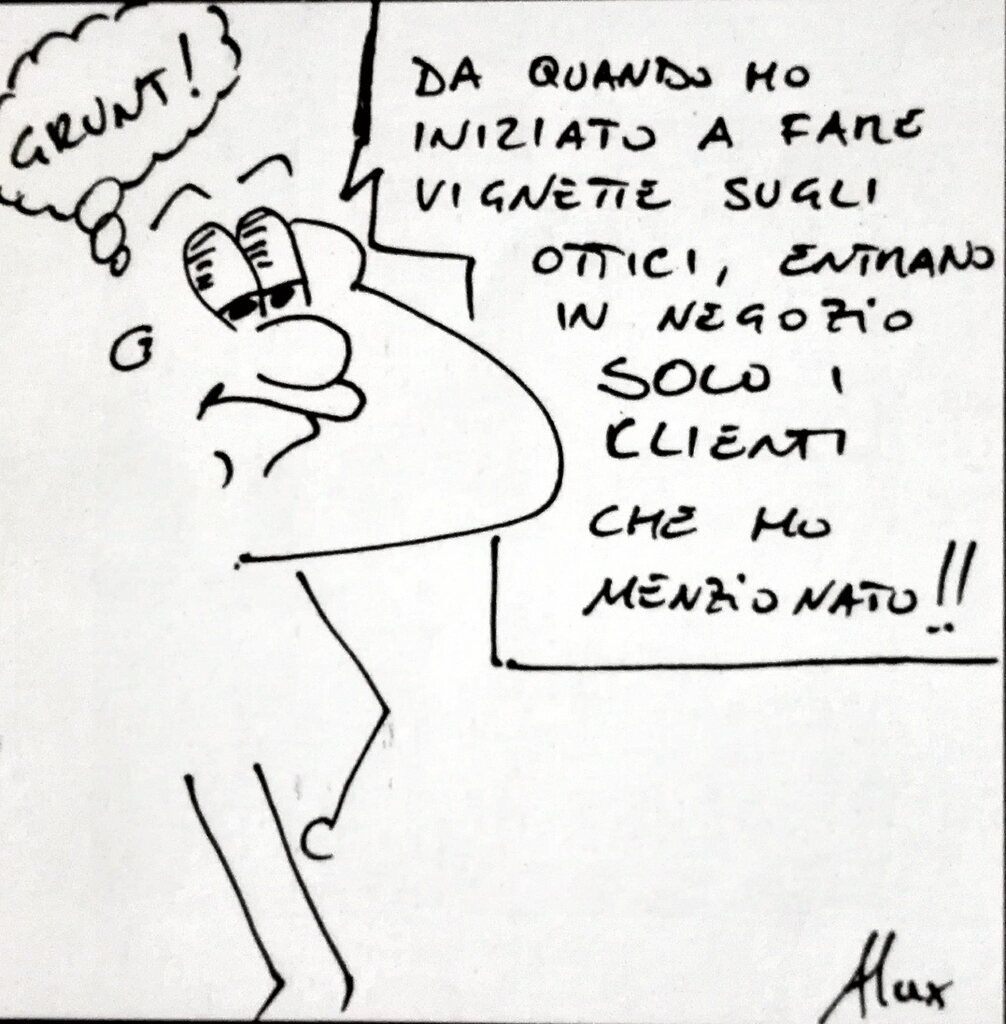 GRUNT!
DA QUANDO HO
INIZIATO A FARE
VIGNETTE SUGLI
OTTICI, ENTRANO
IN NEGOZIO
SOLO I
CLIENTI
CHE HO
MENZIONATO!!
Alux